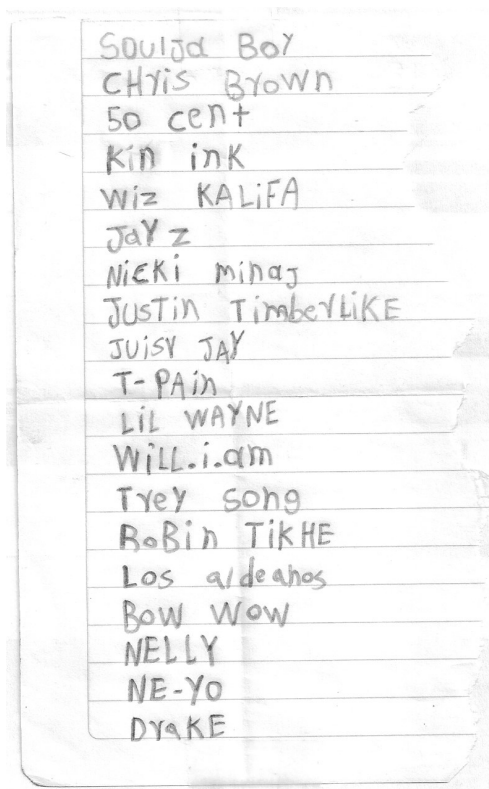 Soulja Boy
CHris Brown
50 cent
Kin ink
Wiz KALiFA
JaY z
NiCKi minaj
JUSTin TimberLiKE
JUisY JAY
T-PAin
LiL WAYNE
WiLL.i.am
Trey song
RoBin TiKHE
Los aldeanos
Bow wow
NELLY
NE-YO
DraKE